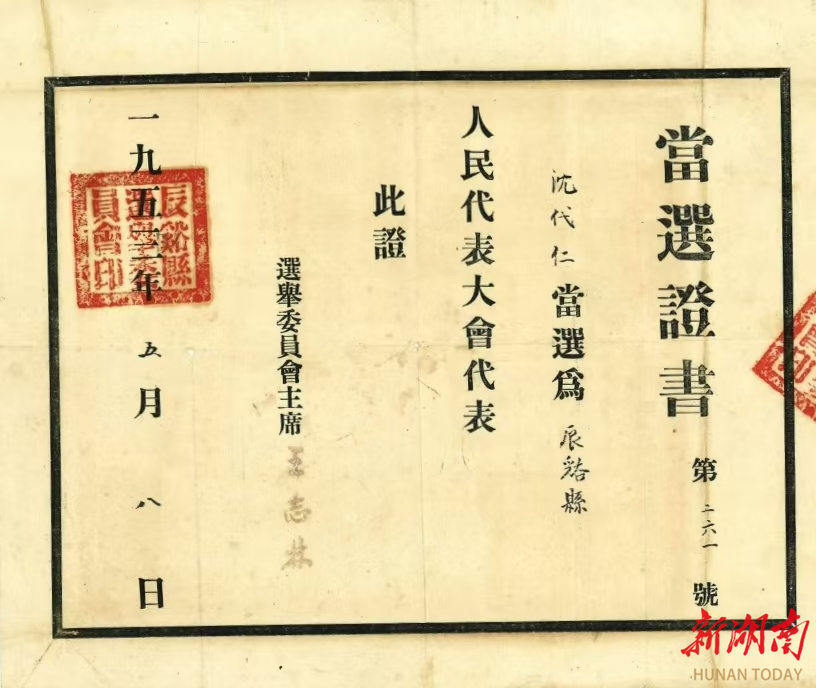 當選證書 第二六一號
沈代仁當選爲辰谿縣
人民代表大會代表
此證
選舉委員會主席 王志林
一九五三年五月八日
辰谿縣選舉委員會印
新湖南
HUNAN TODAY